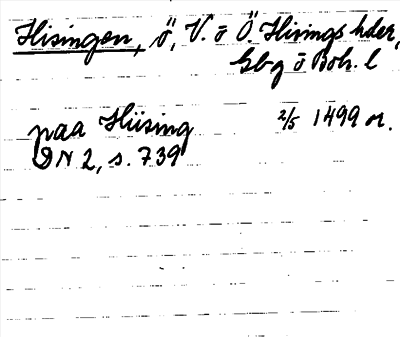 Hisingen, ö, V. ō Ö. Hisings hder,
Gbg ō Boh. l
paa Hiising 2/5 1499 or.
DN 2, s. 739